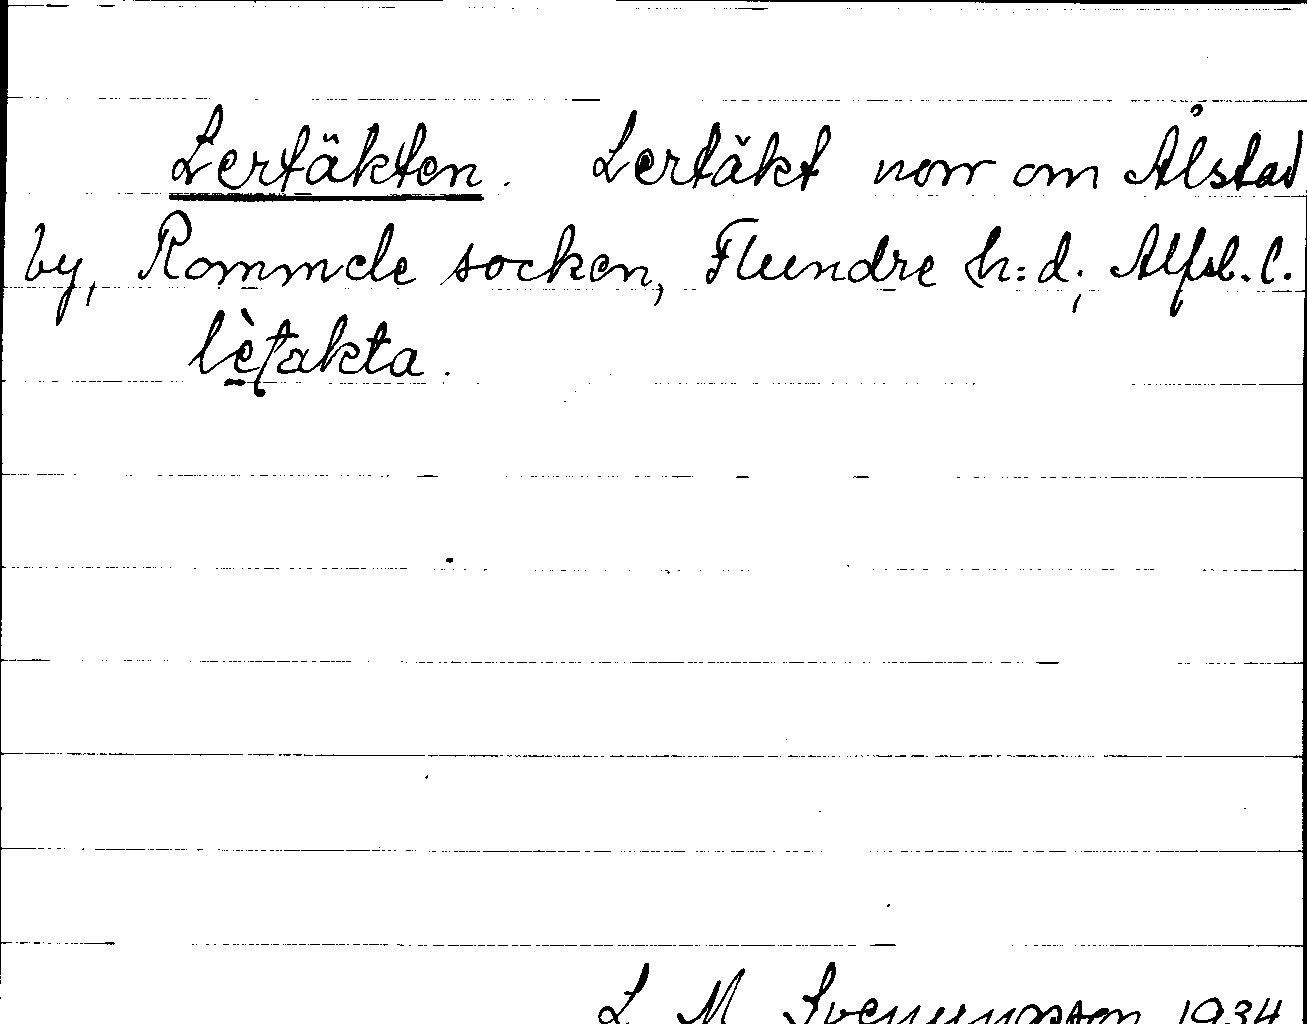 Lertäkten. Lertäkt norr om Ålstad
by, Rommele socken, Flundre h:d, Älfsb. l.
lètakta.
L M Svenungsson 1934